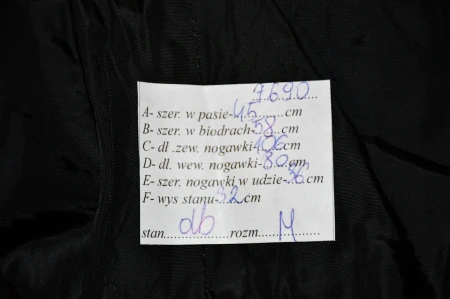 7690
A- szer. w pasie-45........cm
B- szer. w biodrach-58...cm
C- dł .zew. nogawki-106cm
D- dł. wew. nogawki-80.cm
E- szer. nogawki w udzie-.36cm
F- wys stanu-32.cm
stan....db....rozm....M....